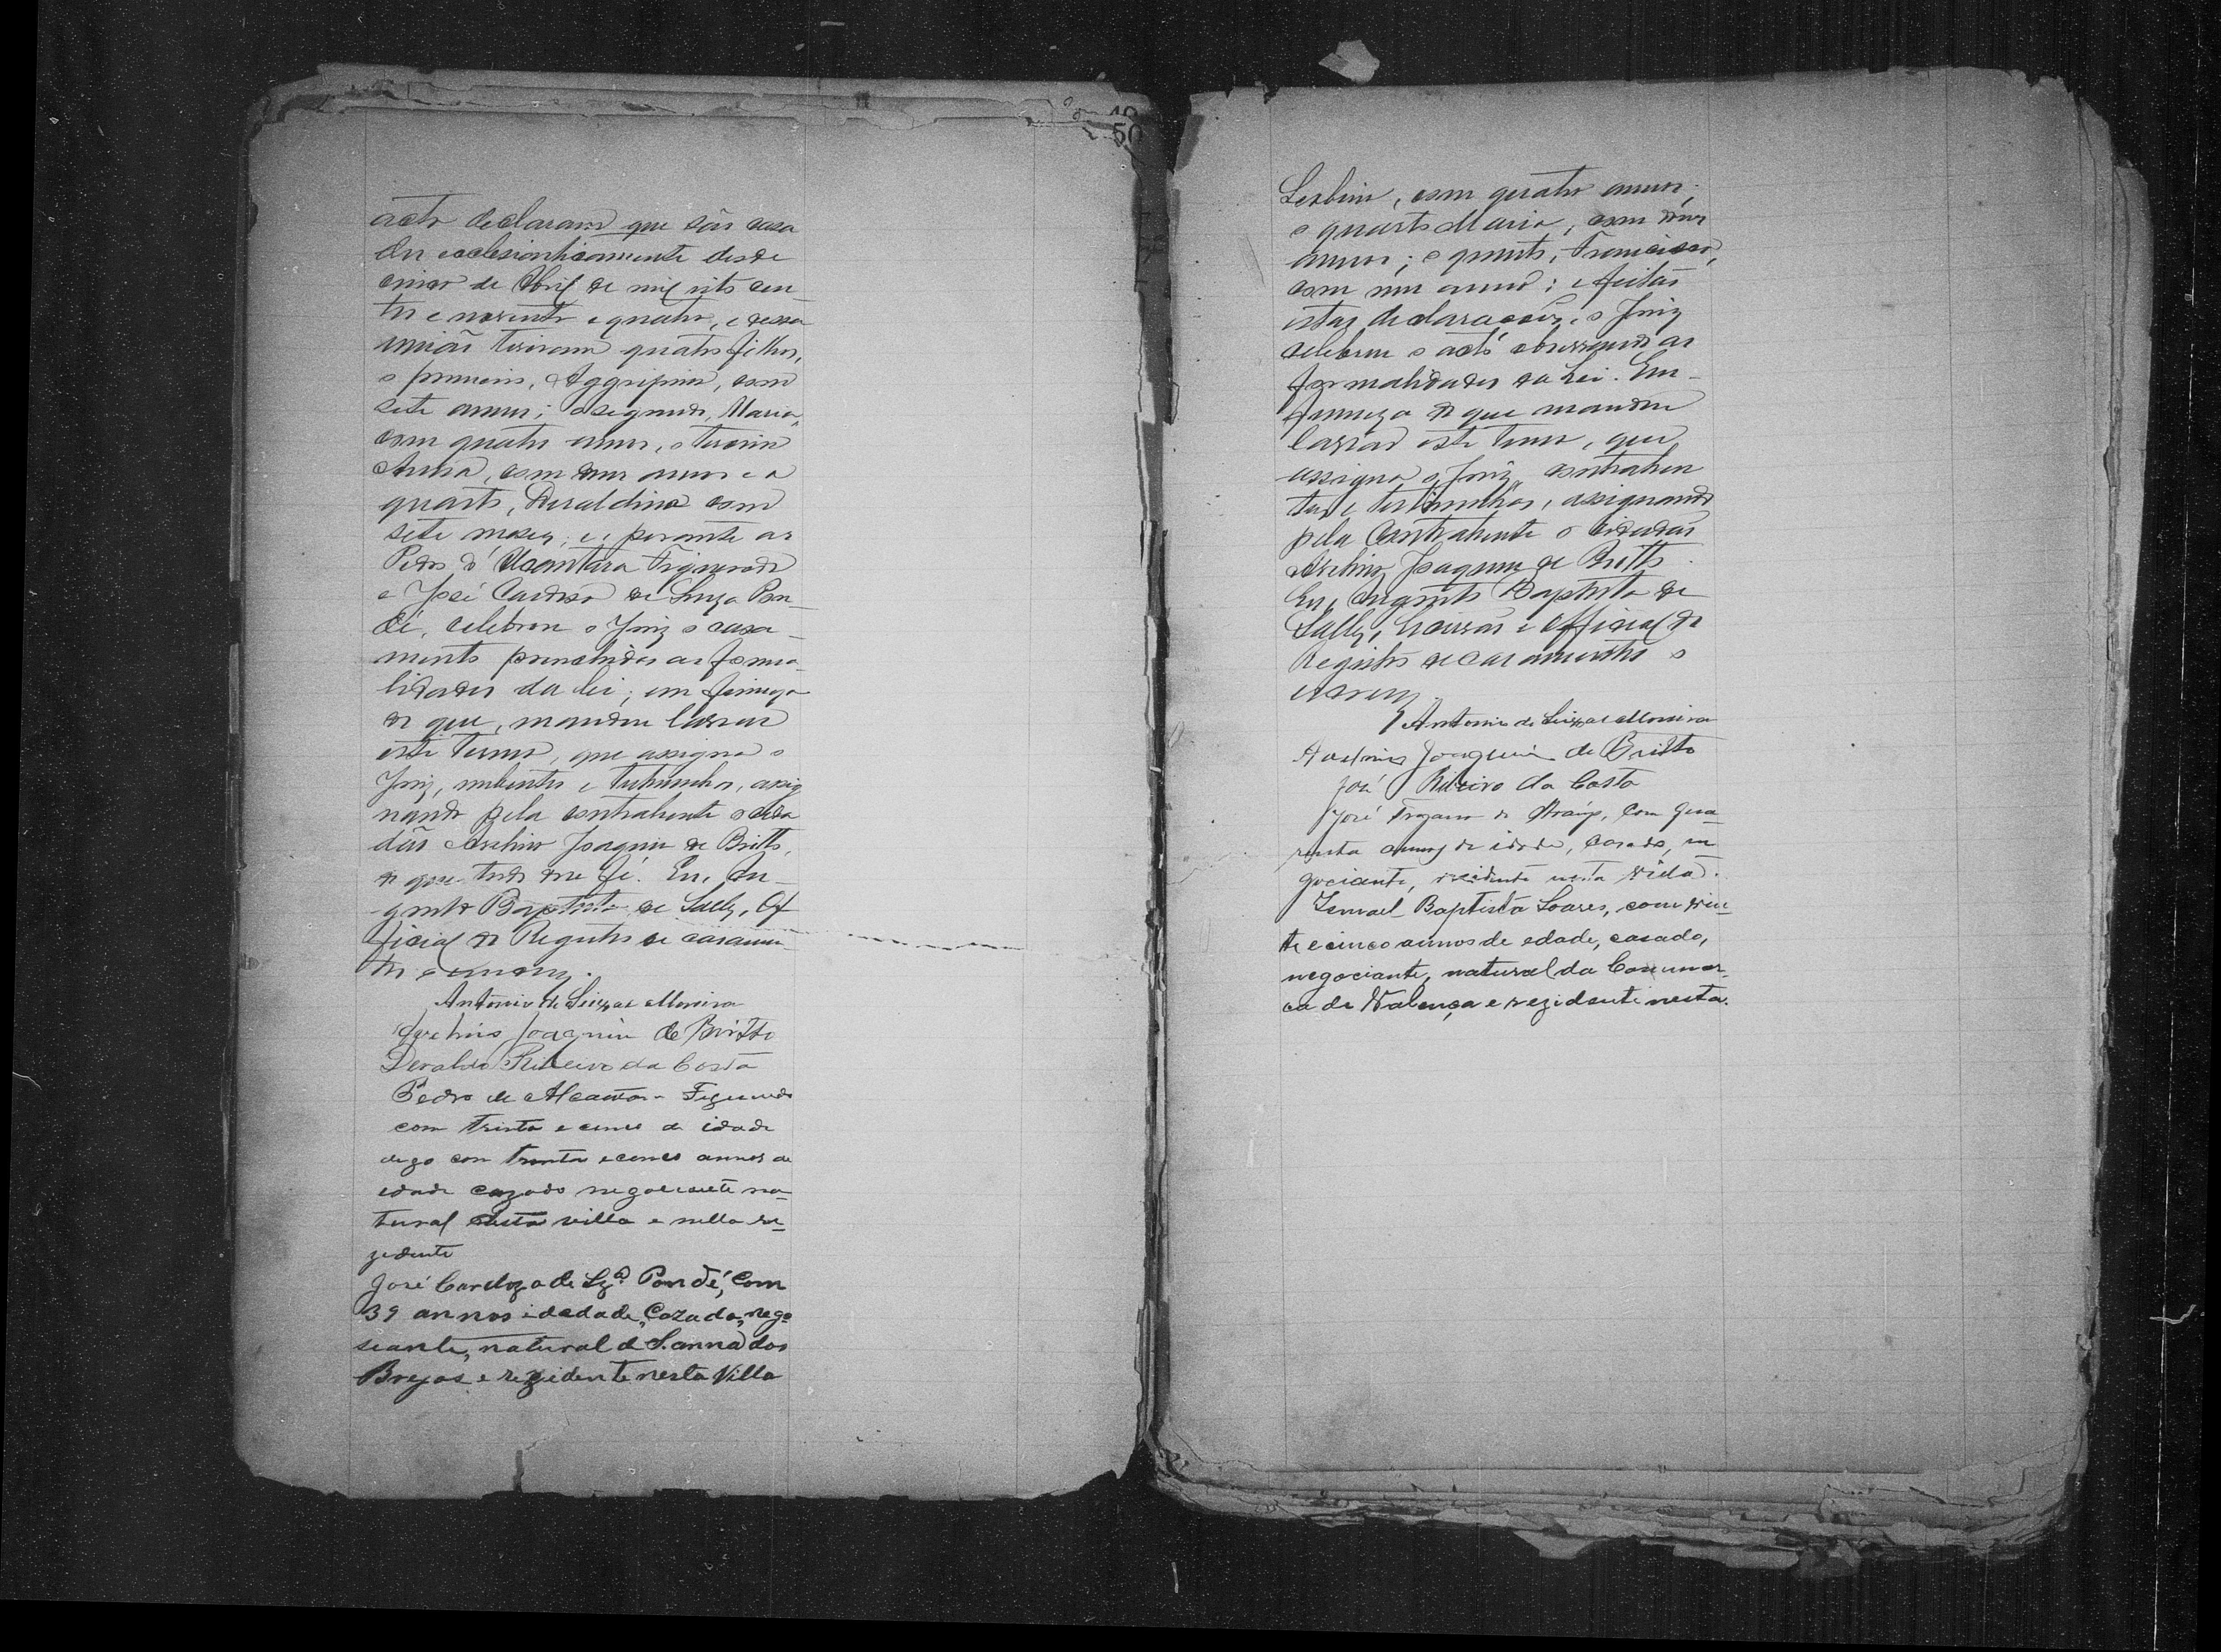 50
acto declaram que são casa
dos ecclesiasticamente desde
cinco de Abril de mil oito cen-
tos e noventa e quatro, e dessa
união tiveram quatro filhos,
o primeiro, Aggripino, com
sete annos; o segundo, Maria,
com quatro annos, o terceiro
Anna, com dous annos e a
quarto, Duraldina com
sete mezes; e, perante as
Pedro d'Alcantara Figueredo
e José Cardoso de Souza Pon-
dé, celebrou o Juiz o casa-
mento preenchidas as forma-
lidades da lei; em firmeza
do que, mandou lavrar
este termo, que assigna o
Juiz, nubentes e testemunhas, assig
nando pela contrahente o cida
dão Avelino Joaquim de Britto,
do que tudo dou fé. Eu, Au-
gusto Baptista de Salles, Of
ficial do Registro de casamen
tos o escrevy.
Antonio de Seixas Moreira
Avelino Joaquim de Britto
Deraldo Ribeiro da Costa
Pedro de Alcantara Figueredo
com trinta e cinco de idade
digo com trinta e cinco annos de
idade cazado negociante na-
tural desta villa e nella re-
zidente
José Cardozo de Sz.ª Pondé, Com
39 annos idadade, Cazado, nego
seante, natural de S. anna dos
Brejos e rezidente nesta Villa
com quatro annos;
o quarto Maria, com dous
annos; o quinto, Francisco,
com um anno; e feitas
estas declarações, o Juiz
celebrou o acto observando as
formalidades da Lei. Em
firmeza do que mandou
lavrar este termo, que
assigna o Juiz, contrahen
tes e testemunhas, assignando
pela Contrahente o Cidadão
Avelino Joaquim de Britto.
Eu, Augusto Baptista de
Salles, Escrivão e Official do
Registro de casamentos o
escrevy.
Antonio de Seixas Moreira
Avelino Joaquim de Britto
José Ribeiro da Costa
José Trajano de Araujo, com qua-
renta annos de idade, casado, ne
gociante, rezidente nesta Villa.
Ismael Baptista Soares, com vin-
te e cinco annos de edade, casado,
negociante, natural da Comar-
ca de Valença e rezidente nesta.